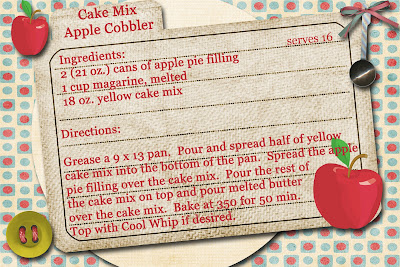 Cake Mix
Apple Cobbler
serves 16
Ingredients:
2 (21 oz.) cans of apple pie filling
1 cup magarine, melted
18 oz. yellow cake mix
Directions:
Grease a 9 x 13 pan. Pour and spread half of yellow
cake mix into the bottom of the pan. Spread the apple
pie filling over the cake mix. Pour the rest of
the cake mix on top and pour melted butter
over the cake mix. Bake at 350 for 50 min.
Top with Cool Whip if desired.